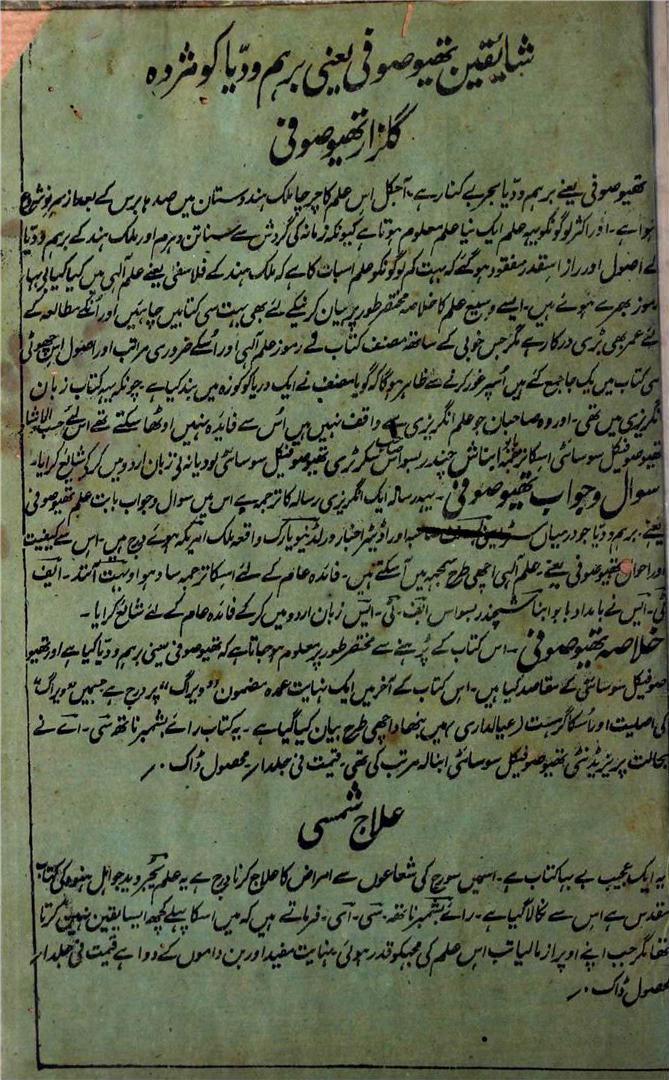 شایقین تھیوصوفی یعنی برہم ودّیا کو مژدہ
گلزار تھیوصوفی
تھیوصوفی یعنے برہم ودّیا بحر بے کنار ہے۔ آجکل اس علم کا چرچا ملک ہندوستان میں صدہا برس کے بعد از سر نو شروع
ہوا ہے۔ اور اکثر لوگونکو یہہ علم ایک نیا علم معلوم ہوتا ہے کیونکہ زمانہ کی گردش سے سناتن دہرم اور ملک ہند کے برہم ودّیا
کے اصول اور راز اسقدر مفقود ہوگئے کہ بہت کم لوگونکو علم اسبات کا ہے کہ ملک ہند کے فلاسفی یعنے علم آلہی میں کیا کیا بے بہا
رموز بھرے ہوئے ہیں۔ ایسے وسیع علم کا خلاصہ مختصر طور پر بیان کرنیکے لئے بھی بہت سی کتابیں چاہئیں اور اُنکے مطالعہ کے
لئے عمر بھی بڑی درکار ہے مگر جس خوبی کے ساتھ مصنف کتاب نے رموز علم آلہی اور اُسکے ضروری مراتب اور اصول اس چھوٹی
سی کتاب میں یک جا جمع کئے ہیں اُسپر غور کرنے سے ظاہر ہوگا کہ گویا مصنف نے ایک دریا کو کوزہ میں بند کیا ہے چونکہ یہہ کتاب زبان
انگریزی میں تھی۔ اور وہ صاحبان جو علم انگریزی سے واقف نہیں ہیں اُس سے فایدہ نہیں اوٹھا سکتے تھے اس لئے حسب الارشاد
تھیوصوفیکل سوسائٹی اسکا ترجمہ ابناش چندر بسواس سکرٹری تھیوصوفیکل سوسائٹی لودیانہ نے زبان اردو میں کر کے شایع کرایا۔
سوال وجواب تھیوصوفی۔ یہہ رسالہ ایک انگریزی رسالہ کا ترجمہ ہے اس میں سوال وجواب بابت علم تھیوصوفی
یعنے۔ برہم ودیا جو درمیان اور اڈیٹر اخبار ورلڈ نیویارک واقعہ ملک امریکہ ہوئے درج ہیں۔ اس سے کیفیت
اور احوال تھیوصوفی یعنے۔ علم آلہی اچھی طرح سمجہہ میں آسکتے ہیں۔ فائدہ عام کے لئے اسکا ترجمہ سادہو اوپیت آنند۔ ایف
ٹی۔ ایس نے بامداد بابو ابناش چندر بسواس ایف۔ ٹی۔ ایس زبان اردو میں کر کے فائدہ عام کے لئے شائع کرایا۔
خلاصہ تھیوصوفی۔ اس کتاب کے پڑہنے سے مختصر طور پر معلوم ہوجاتا ہے کہ تھیوصوفی یعنی برہم ودیا کیا ہے اور تھیو
صوفیکل سوسائٹی کے مقاصد کیا ہیں۔ اس کتاب کے آخر میں ایک نہایت عمدہ مضمون "ویراگ" پر درج ہے جسمیں "ویراگ"
کی اصلیت اور اُسکا گرہست (عیالداری) میں نبھاؤ اچھی طرح بیان کیا گیا ہے۔ یہ کتاب رائے بشمبر ناتھ سی۔ اے نے
بحالت پریزیڈنٹی تھیوصوفیکل سوسائٹی انبالہ مرتب کی تھی۔ قیمت فی جلد ۱ر محصول ڈاک ۰ر
علاج شمسی
یہ ایک عجیب بے بہا کتاب ہے۔ اسمیں سورج کی شعاعوں سے امراض کا علاج کرنا درج ہے یہ علم یجر وید جو اہل ہنود کی کتاب
مقدس ہے اس سے نکالا گیا ہے۔ رائے بشمبر ناتھ۔ سی۔ ای۔ فرماتے ہیں کہ میں اسکا پہلے کچھ ایسا یقین نہیں کرتا
تھا مگر جب اپنے اوپر ازمالیا تب اس علم کی مجہکو قدر ہوئی نہایت مفید اور بن داموں کے دوا ہے قیمت فی جلد ۱ر
محصول ڈاک ۰ر